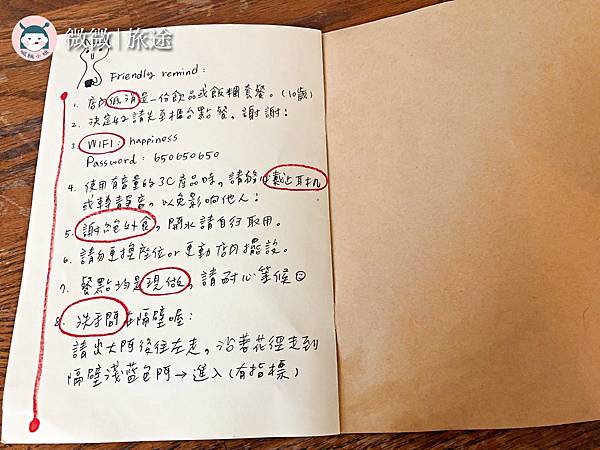 微微|旅途
Friendly remind:
1. 店內低消是一份飲品或飯糰套餐。(10歲)
2. 決定好請先至櫃台點餐。謝謝!
3. WIFI: happiness
Password: 650650650
4. 使用有音量的3C產品時,請務必戴上耳機
或轉靜音,以免影響他人!
5. 謝絕外食,開水請自行取用。
6. 請勿更換座位or更動店內擺設。
7. 餐點均是現做,請耐心等候☺
8. 洗手間在隔壁喔:
請出大門後往左走,沿著花徑走到
隔壁淺藍色門→進入(有指標)